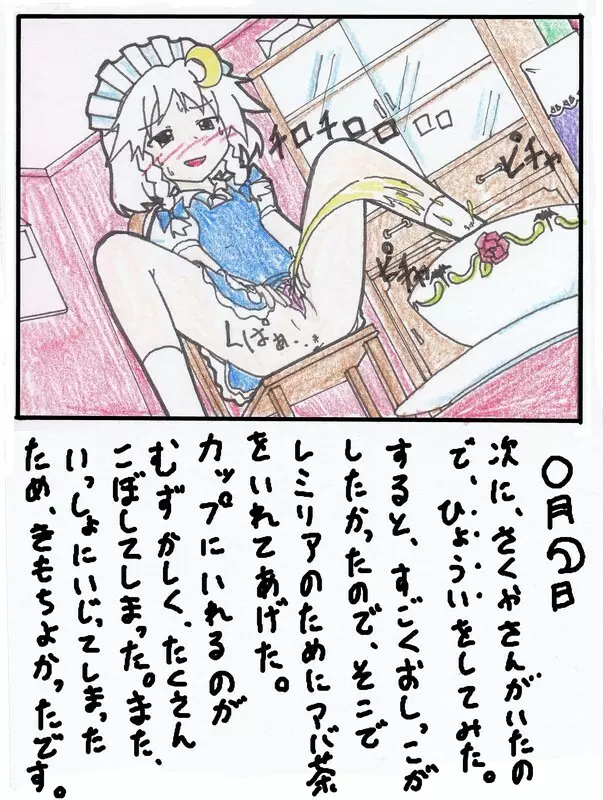 チロチロロロロ
ピチャ
ピチャ
くぱぁ…
〇月 日
次に、さくやさんがいたの
で、ひょういをしてみた。
すると、すごくおしっこが
したかったので、そこで
レミリアのためにアバ茶
をいれてあげた。
カップにいれるのが
むずかしく、たくさん
こぼしてしまった。また、
いっしょにいじってしまった
ため、きもちよかったです。